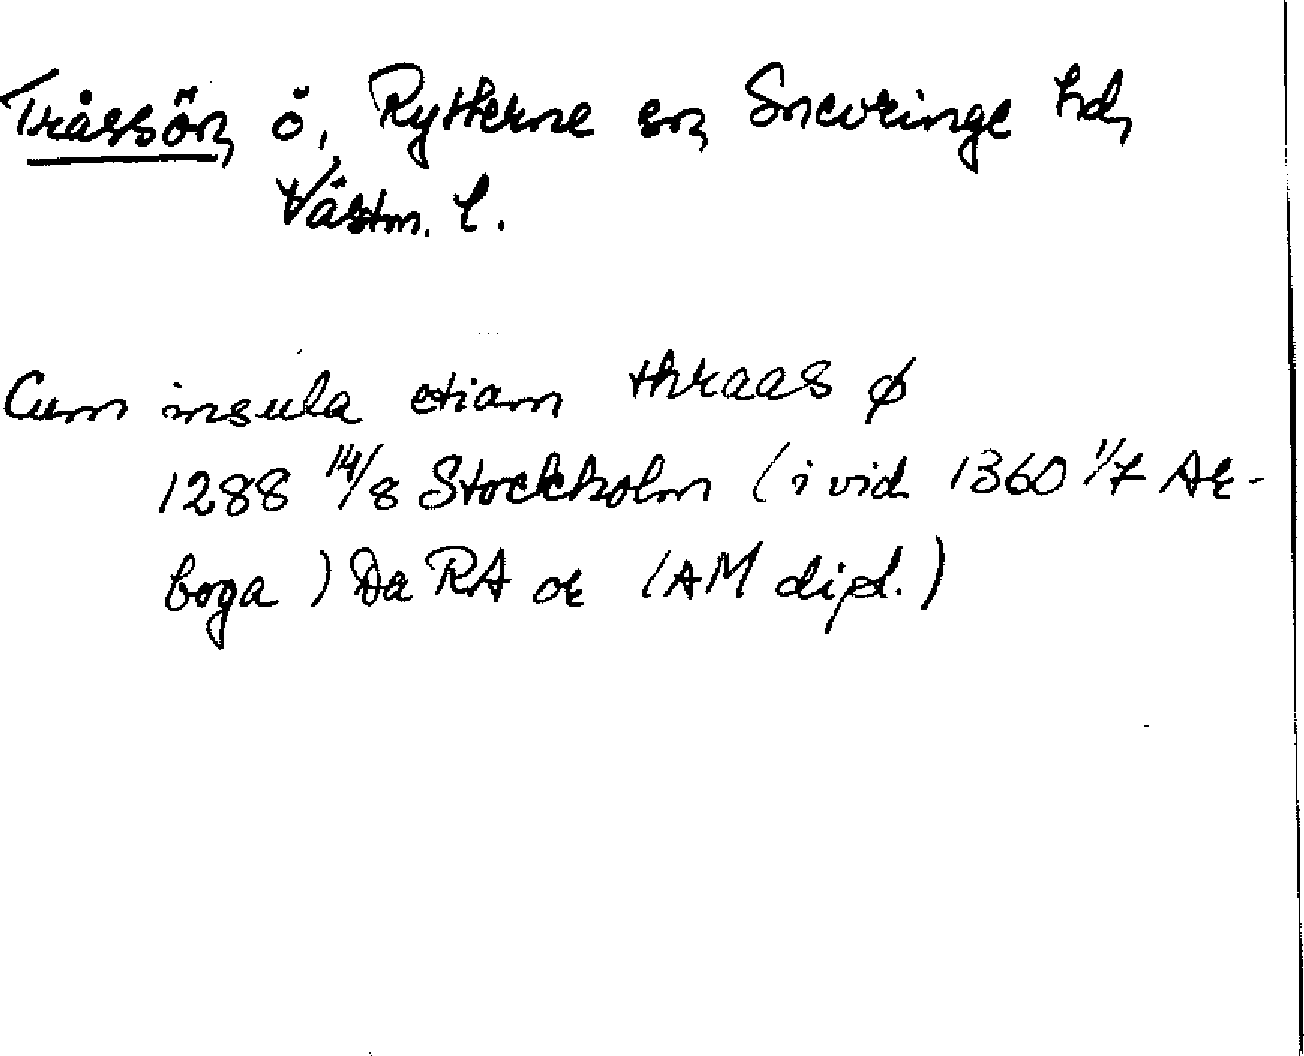 Tråssön, ö, Rytterne sn, Snevringe hd,
Västm. l.
Cum insula etiam thraas ø
1288 14/8 Stockholm (i vid 1360 1/7 Ar-
boga) Da RA or (AM dipl.)